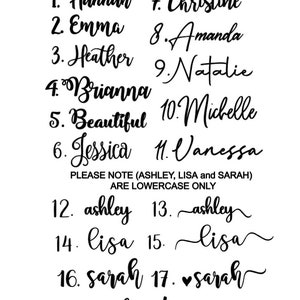 1. Hannah 7. Christine
2. Emma 8. Amanda
3. Heather 9. Natalie
4. Brianna 10. Michelle
5. Beautiful
6. Jessica 11. Vanessa
PLEASE NOTE (ASHLEY, LISA and SARAH)
ARE LOWERCASE ONLY
12. ashley 13. ashley
14. lisa 15. lisa
16. sarah 17. ♥sarah